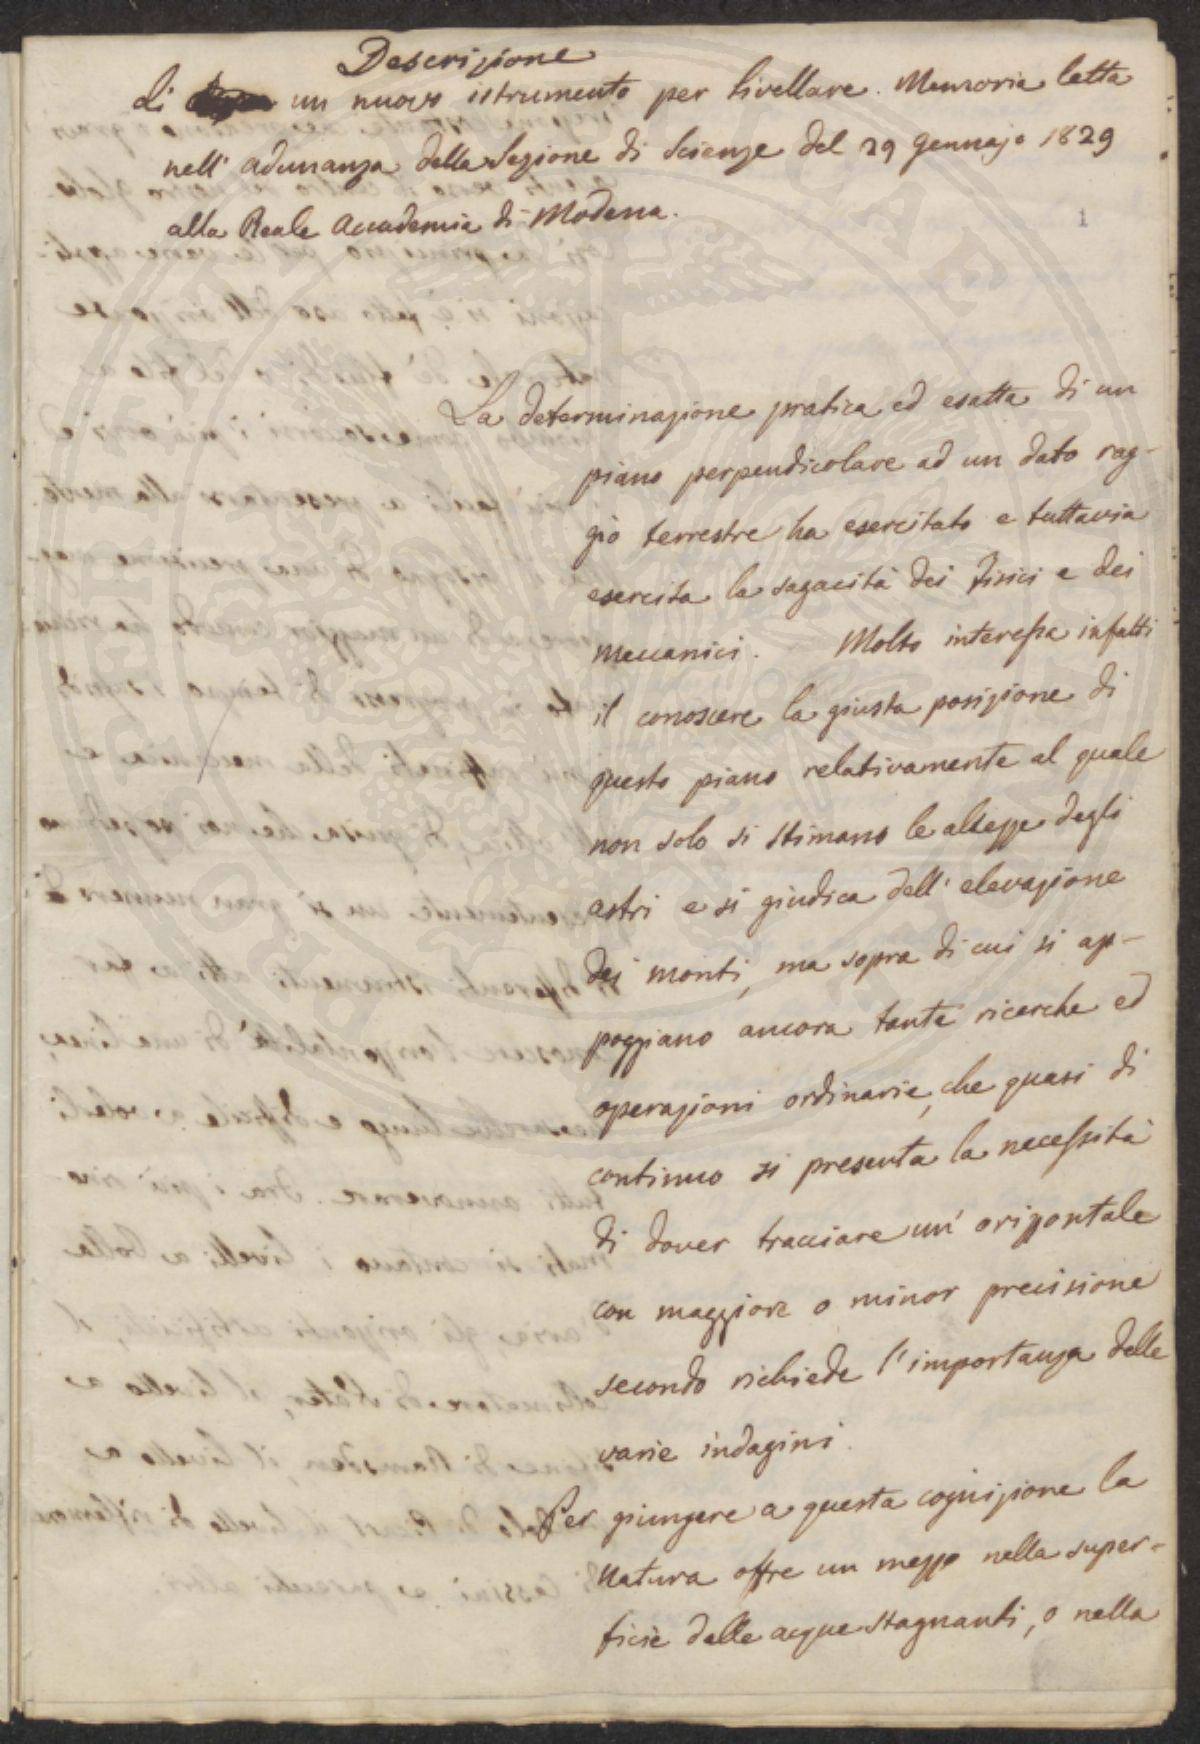 Descrizione
di un nuovo istrumento per livellare. Memoria letta
nell' adunanza della Sezione di Scienze del 29 gennajo 1829
alla Reale Accademia di Modena.
1
La determinazione pratica ed esatta di un
piano perpendicolare ad un dato rag-
gio terrestre ha esercitato e tuttavia
esercita la sagacità dei Fisici e dei
meccanici. Molto interessa infatti
il conoscere la giusta posizione di
questo piano relativamente al quale
non solo si stimano le altezze degli
astri e si giudica dell' elevazione
dei monti, ma sopra di cui si ap-
poggiano ancora tante ricerche ed
operazioni ordinarie, che quasi di
continuo si presenta la necessità
di dover tracciare un' orizzontale
con maggiore o minor precisione
secondo richiede l'importanza delle
varie indagini.
Per giungere a questa cognizione la
Natura offre un mezzo nella super-
ficie delle acque stagnanti, o nella